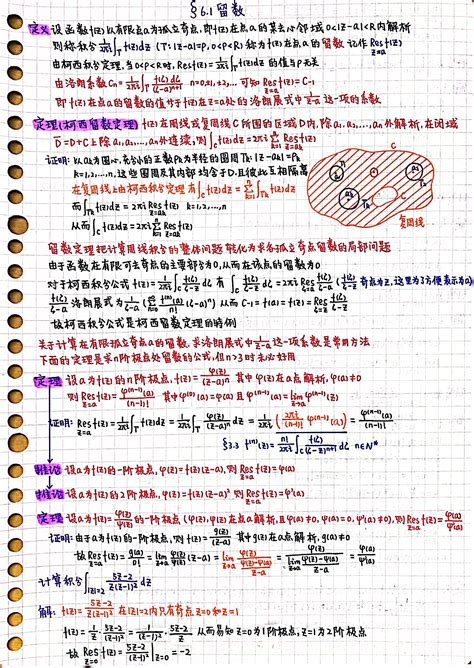 §6.1 留数
定义 设函数f(z)以有限点a为孤立奇点,即f(z)在点a的某去心邻域 0<|z-a|<R内解析
则称积分 1/2πi ∫_Γ f(z)dz (Γ:|z-a|=ρ, 0<ρ<R) 称为f(z)在点a的 留数 记作 Res_{z=a} f(z)
由柯西积分定理,当0<ρ<R时, Res_{z=a} f(z) = 1/2πi ∫_Γ f(z)dz 的值与ρ无关
由洛朗系数 Cn = 1/2πi ∫_Γ f(ζ)/(ζ-a)^{n+1} dζ n=0,±1,±2,… 可知 Res_{z=a} f(z) = C-1
即f(z)在点a的留数的值等于f(z)在z=a处的洛朗展式中 1/(z-a) 这一项的系数
定理(柯西留数定理) f(z)在周线或复周线C所围的区域D内,除a1,a2,…,an外解析,在闭域
D̄=D+C上除a1,a2,…,an外连续,则 ∫_C f(z)dz = 2πi Σ_{k=1}^{n} Res_{z=ak} f(z)
证明:以ak为圆心,充分小的正数ρk为半径的圆周Γk:|z-ak|=ρk
k=1,2,…,n, 这些圆周及其内部均含于D,且彼此互相隔离
在复周线上由柯西积分定理有 ∫_C f(z)dz = Σ_{k=1}^{n} ∫_{Γk} f(z)dz
而 ∫_{Γk} f(z)dz = 2πi Res_{z=ak} f(z) k=1,2,…,n
从而 ∫_C f(z)dz = 2πi Σ_{k=1}^{n} Res_{z=ak} f(z)
C
D
ak
Γk
复周线
留数定理把计算周线积分的整体问题 转化为求各孤立奇点留数的局部问题
由于函数在有限可去奇点的主要部分为0,从而在该点的留数为0
对于柯西积分公式 f(z) = 1/2πi ∫_C f(ζ)/(ζ-z) dζ 有 ∫_C f(ζ)/(ζ-z) dζ = 2πi Res_{ζ=z} f(ζ)/(ζ-z)
f(ζ)/(ζ-z) 洛朗展式为
故柯西积分公式是柯西留数定理的特例
关于计算在有限孤立奇点a的留数,求洛朗展式中 1/(z-a) 这一项系数是常用方法
下面的定理是求n阶极点处留数的公式,但n>3时未必好用
定理 设a为f(z)的n阶极点, f(z) = φ(z)/(z-a)^n 其中φ(z)在a点解析, φ(a)≠0
则 Res_{z=a} f(z) = φ^(n-1)(a)/(n-1)! 其中φ^(0)(a)=φ(a) 且 φ^(n-1)(a) = lim_{z→a} φ^(n-1)(z)
证明: Res_{z=a} f(z) = 1/2πi ∫_Γ f(z)dz = 1/2πi ∫_Γ φ(z)/(z-a)^n dz = 1/2πi (2πi/(n-1)! φ^(n-1)(a)) = φ^(n-1)(a)/(n-1)!
§3.3 f^(n)(z) = n!/2πi ∫_C f(ζ)/(ζ-z)^{n+1} dζ n∈N*
推论 设a为f(z)的一阶极点, φ(z)=f(z)(z-a), 则 Res_{z=a} f(z) = φ(a)
推论 设a为f(z)的2阶极点, φ(z)=f(z)(z-a)² 则 Res_{z=a} f(z) = φ'(a)
定理 设a为f(z)=φ(z)/ψ(z)的一阶极点 (φ(z),ψ(z)在点a解析,且φ(a)≠0, ψ(a)=0, ψ'(a)≠0), 则 Res_{z=a} f(z) = φ(a)/ψ'(a)
证明:由于a为f(z)一阶极点,则f(z) = g(z)/(z-a) 其中g(z)在点a解析, g(a)≠0
故 Res_{z=a} f(z) = g(a)/0! = lim_{z→a} φ(z)/ψ(z) (z-a) = lim_{z→a} φ(z)/((ψ(z)-ψ(a))/(z-a)) = φ(a)/ψ'(a)
计算积分 ∫_{|z|=2} (5z-2)/(z(z-1)²) dz
解: f(z) = (5z-2)/(z(z-1)²) 在|z|=2内只有奇点 z=0和z=1
f(z) = 1/z · (5z-2)/(z-1)² = 1/(z-1)² · (5z-2)/z 从而易知z=0为1阶极点, z=1为2阶极点
故 Res_{z=0} f(z) = (5z-2)/(z-1)² |_{z=0} = -2